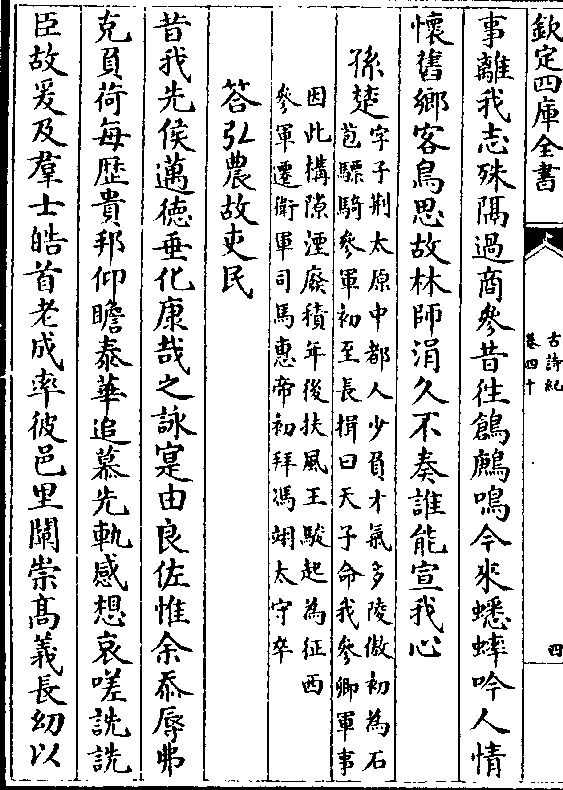 欽定四庫全書
古詩紀
卷四十
四
事離我志殊隔過商參昔往鶬鶊鳴今來蟋蟀吟人情
懷舊鄉客鳥思故林師涓久不奏誰能宣我心
孫楚
字子荆太原中都人少負才氣多陵傲初為石
苞驃騎參軍初至長揖曰天子命我參卿軍事
因此構隙湮廢積年後扶風王駿起為征西
參軍遷衛軍司馬惠帝初拜馮翊太守卒
答弘農故吏民
昔我先侯邁德垂化康哉之詠寔由良佐惟余忝辱弗
克負荷每歴貴邦仰瞻泰華追慕先軌感想哀嗟詵詵
臣故爰及羣士皓首老成率彼邑里闡崇髙義長幼以